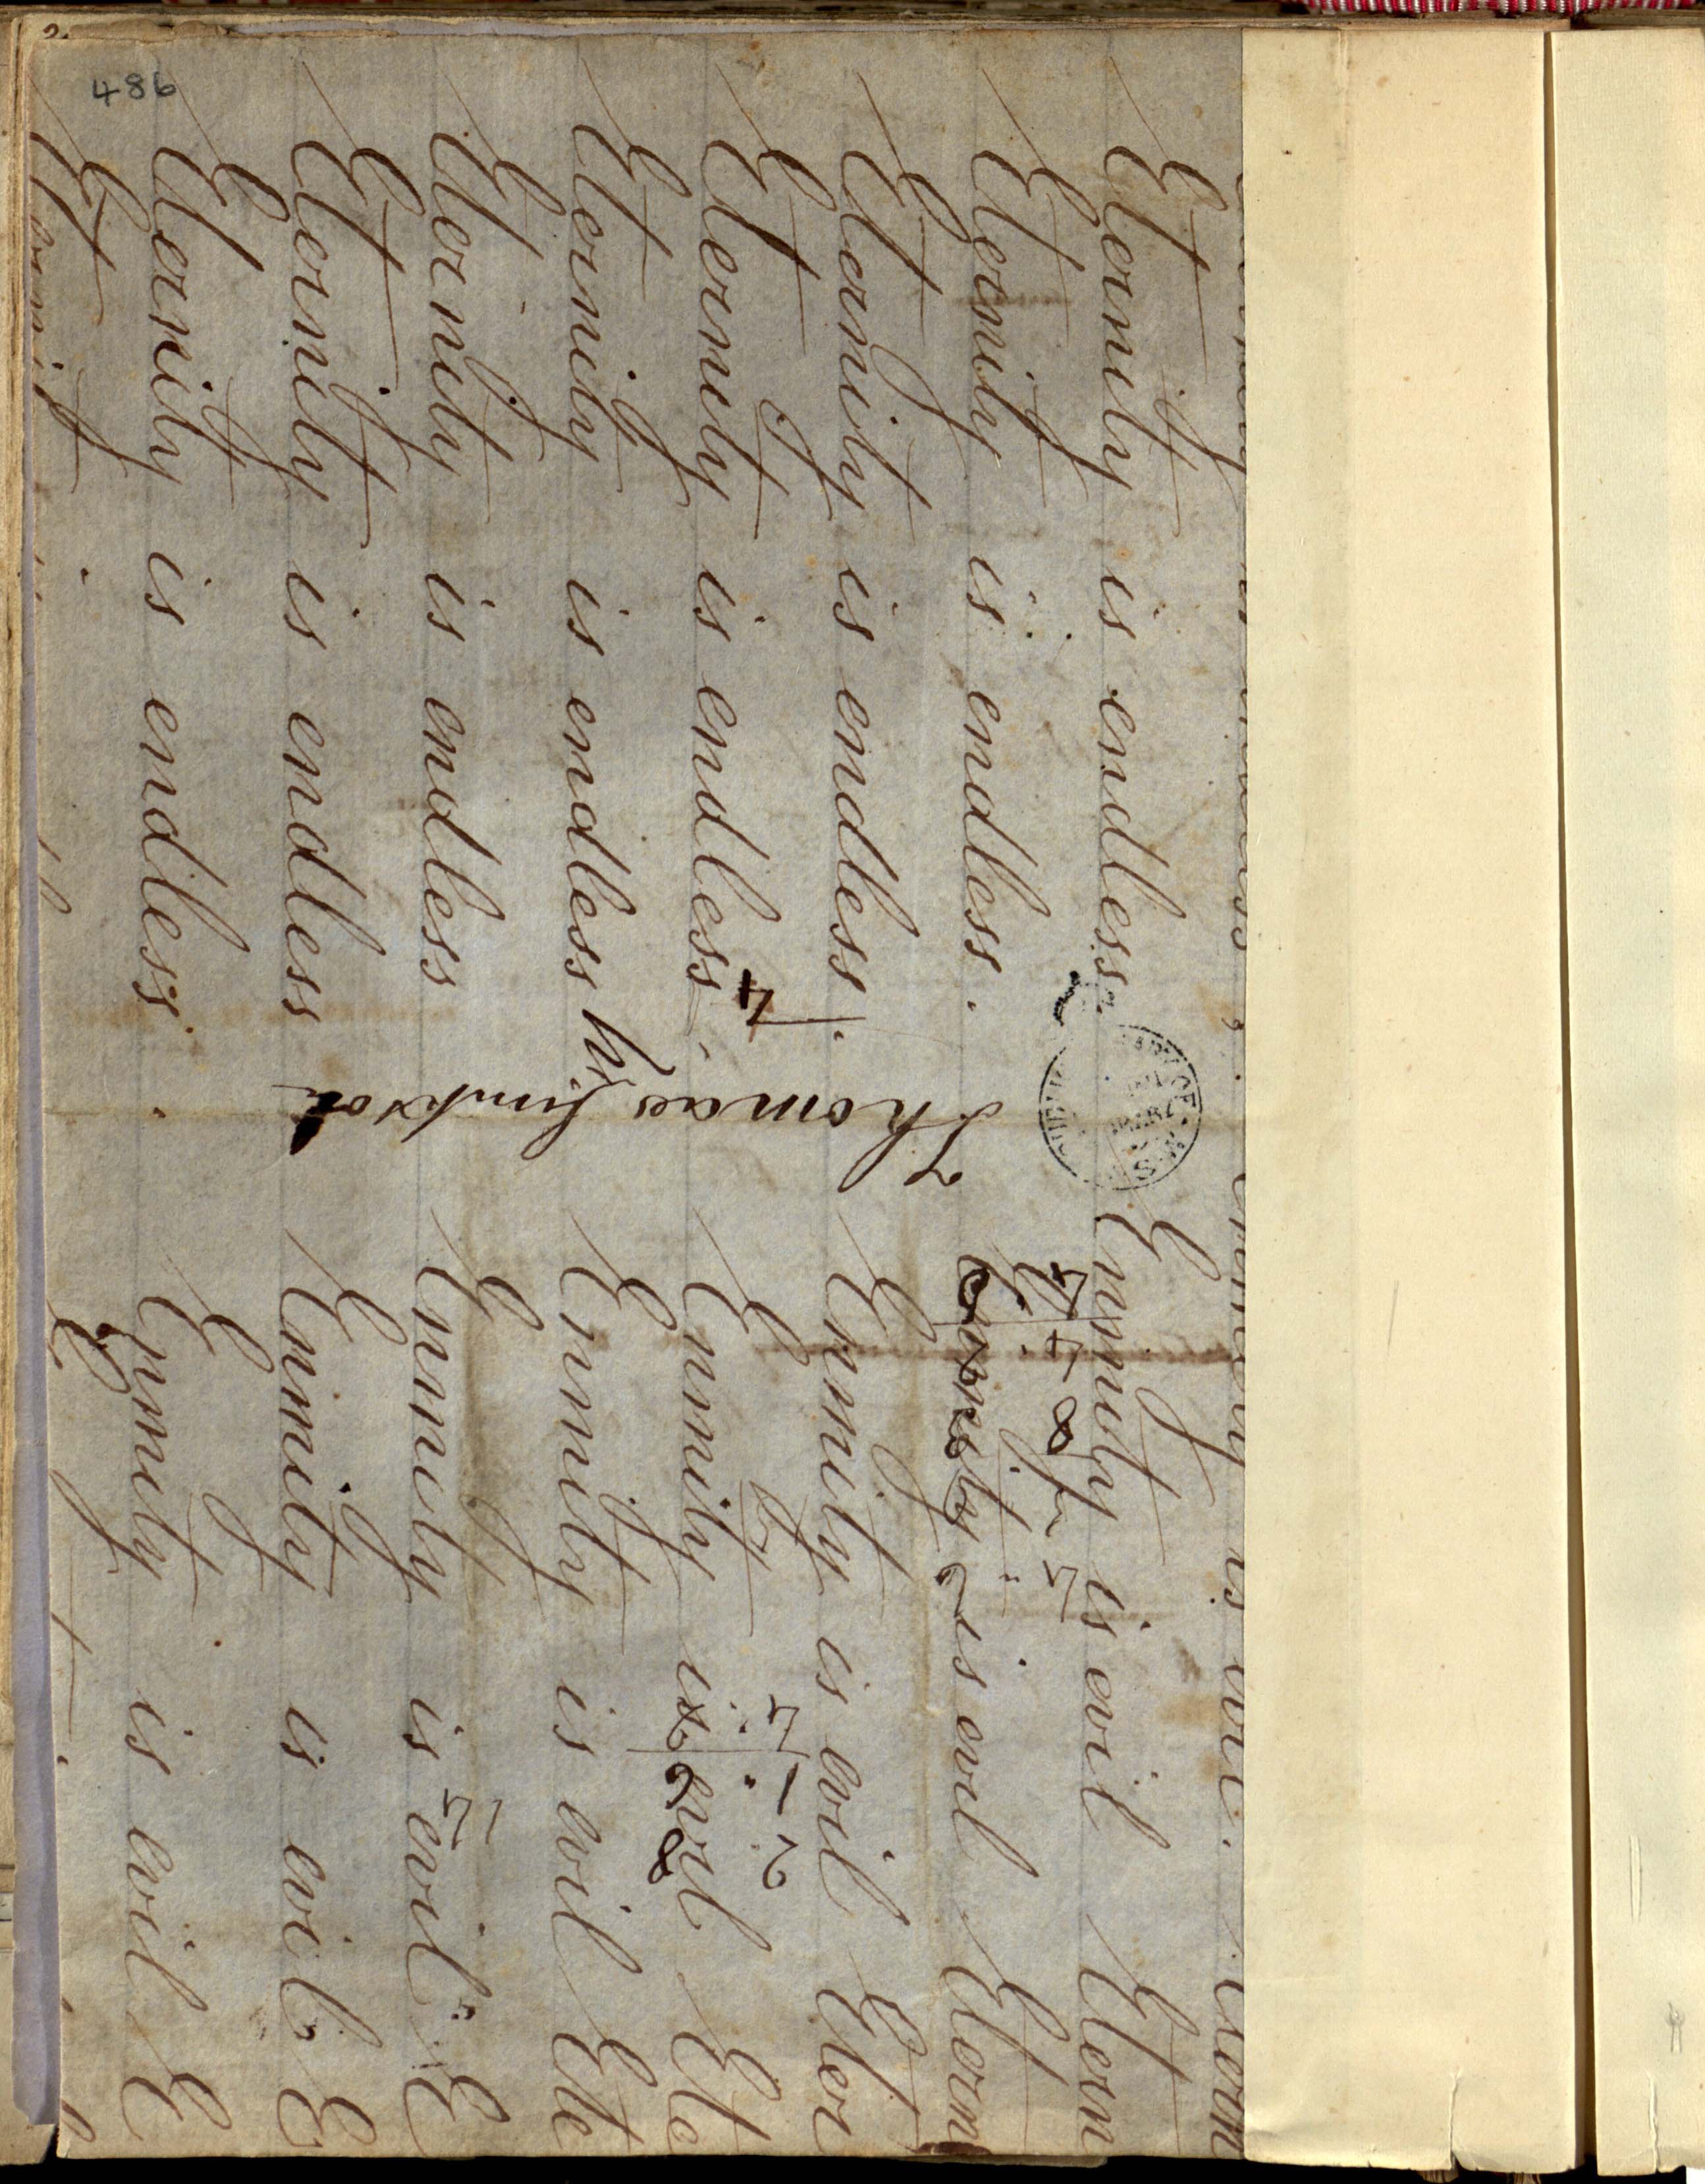 486
Enmity is evil. Etern
Eternity is endless. Enmity is evil Etern
Eternity is endless. is evil Etern
Eternity is endless. Enmity is evil Eter
Eternity is endless. Enmity is evil Ete
Eternity is endless Enmity is evil Ete
Eternity is endless Enmity is evil E
Eternity is endless Enmity is evil. E
Eternity is endless. Enmity is evil E
Eternity
Thomas